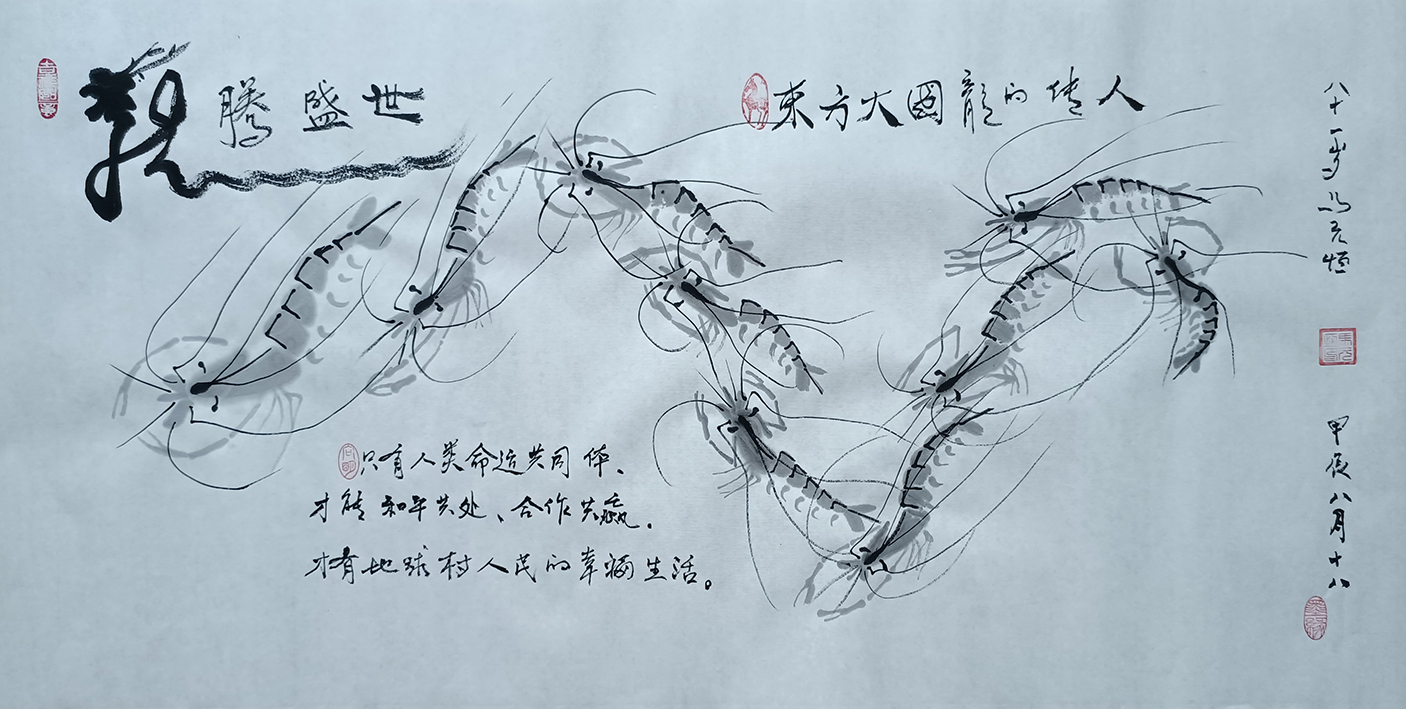 龍腾盛世
東方大國龍的传人
只有人类命运共同体、
才能和平共处、合作共赢。
才有地球村人民的幸福生活。
八十一岁冯元恒
甲辰八月十八